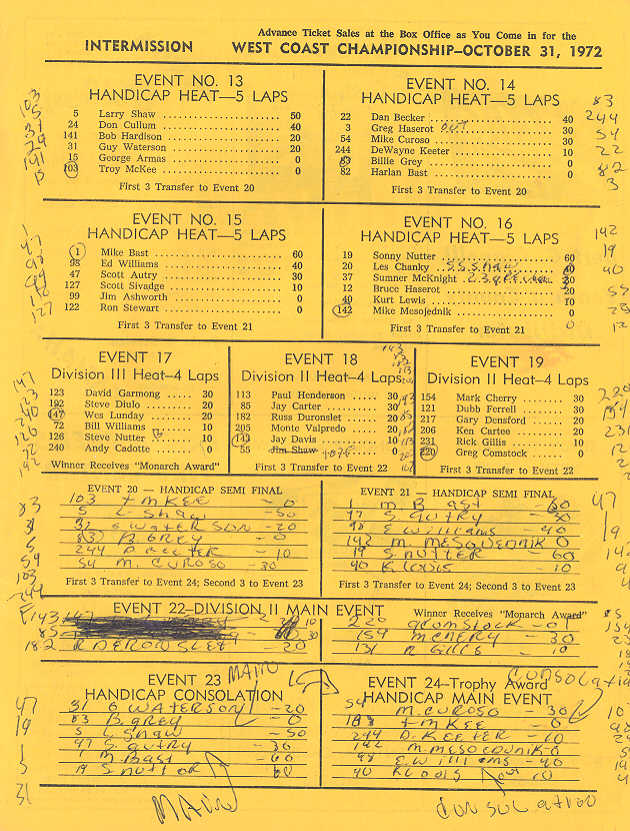 Advance Ticket Sales at the Box Office as You Come in for the
INTERMISSION WEST COAST CHAMPIONSHIP—OCTOBER 31, 1972
EVENT NO. 13
HANDICAP HEAT—5 LAPS
5 Larry Shaw 50
24 Don Cullum 40
141 Bob Hardison 20
31 Guy Waterson 20
15 George Armas 0
103 Troy McKee 0
First 3 Transfer to Event 20
EVENT NO. 14
HANDICAP HEAT—5 LAPS
22 Dan Becker 40
3 Greg Haserot OUT 30
54 Mike Caruso 30
244 DeWayne Keeter 10
83 Billie Grey 0
82 Harlan Bast 0
First 3 Transfer to Event 20
103
5
31
83
244
54
22
82
3
EVENT NO. 15
HANDICAP HEAT—5 LAPS
1 Mike Bast 60
98 Ed Williams 40
47 Scott Autry 30
127 Scott Sivadge 10
99 Jim Ashworth 0
122 Ron Stewart 0
First 3 Transfer to Event 21
EVENT NO. 16
HANDICAP HEAT—5 LAPS
19 Sonny Nutter 60
20 Les Chanky 40
37 Sumner McKnight 30
12 Bruce Haserot 20
40 Kurt Lewis 10
142 Mike Mesojednik 0
First 3 Transfer to Event 21
142
19
40
EVENT 17
Division III Heat—4 Laps
123 David Garmong 30
192 Steve Diulo 20
147 Wes Lunday 20
72 Bill Williams 10
126 Steve Nutter 10
240 Andy Cadotte 0
Winner Receives "Monarch Award"
EVENT 18
Division II Heat—4 Laps
113 Paul Henderson 30
85 Jay Carter 30
182 Russ Duronslet 20
205 Monte Valpredo 20
143 Jay Davis 10
55 Jim Shaw 0
First 3 Transfer to Event 22
EVENT 19
Division II Heat—4 Laps
154 Mark Cherry 30
121 Dubb Ferrell 30
217 Gary Densford 20
206 Ken Carton 20
231 Rick Gillis 10
220 Greg Comstock 0
First 3 Transfer to Event 22
EVENT 20 — HANDICAP SEMI FINAL
103 T MKEE - 0
5 L SHAW - 50
31 G WATERSON - 20
83 B GREY - 0
244 D KEETER - 10
54 M. CUROSO - 30
First 3 Transfer to Event 24; Second 3 to Event 23
EVENT 21 — HANDICAP SEMI FINAL
1 M BAST - 60
47 S AUTRY - 30
98 E Williams - 40
142 M. MESOUDNIK 0
19 S NUTTER - 60
40 K LOUIS - 10
First 3 Transfer to Event 24; Second 3 to Event 23
83
31
5
54
103
244
47
19
EVENT 22—DIVISION II MAIN EVENT Winner Receives "Monarch Award"
143
85
182 R DERONSLET - 20
220 GCOMSTOCK - 0
154 MCHERY - 30
131 R GILLS - 10
EVENT 23 MAIN
HANDICAP CONSOLATION
31 G WATERSON - 20
83 B. GREY - 0
5 L SHAW - 50
47 S. AUTRY - 30
1 M. BAST - 60
19 S. NUTTOR 60
CONSOLATION
EVENT 24—Trophy Award
HANDICAP MAIN EVENT
54 M. CUROSO - 30
103 T MKEE - 0
244 D. KEETER - 10
142 M. MESOEDUNIK 0
98 E. Williams - 40
40 K LOUIS 10
47
19
1
5
31
MAIN
CONSOLATION